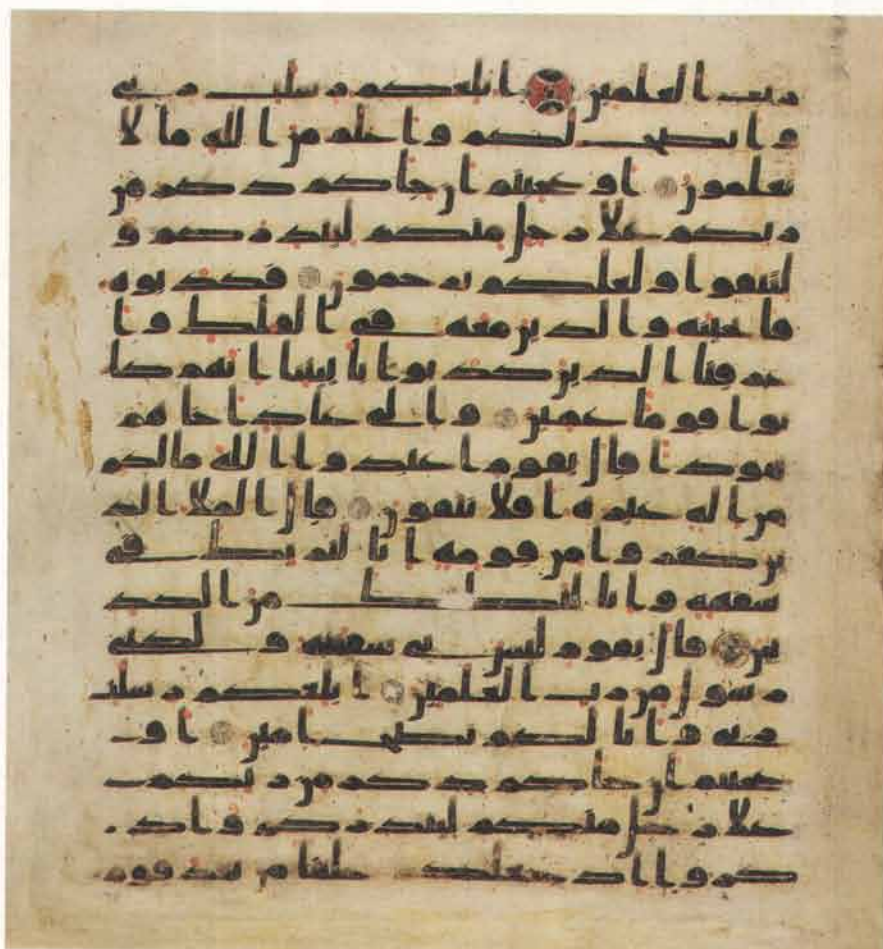 رب العلمين ابلغكم رسلت ربى
وانصح لكم واعلم من الله ما لا
تعلمون اوعجبتم ان جاكم ذكر من
ربكم علا رجل منكم لينذركم و
لتتقوا ولعلكم ترحمون فكذبوه
فانجينه والذين معه فى الفلك وا
غرقنا الذين كذبوا بايتنا انهم كا
نوا قوما عمين والى عاد اخاهم
هودا قال يقوم اعبدوا الله مالكم
من اله غيره افلا تتقون قال الملا الذ
ين كفروا من قومه انا لنريك فى
سفهه وانا لنظنك من الكذ
بين قال يقوم ليس بى سفهه ولكنى
رسول من رب العلمين ابلغكم رسلت
ربى وانا لكم نصح امين او
عجبتم ان جاكم ذكر من ربكم
علا رجل منكم لينذركم واذ
كروا اذ جعلكم خلفا من بعد قوم